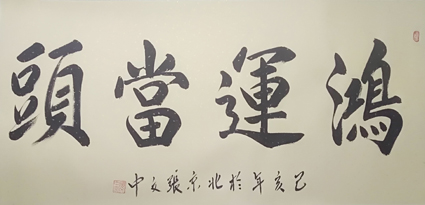 鴻運當頭
己亥年於北京張文中